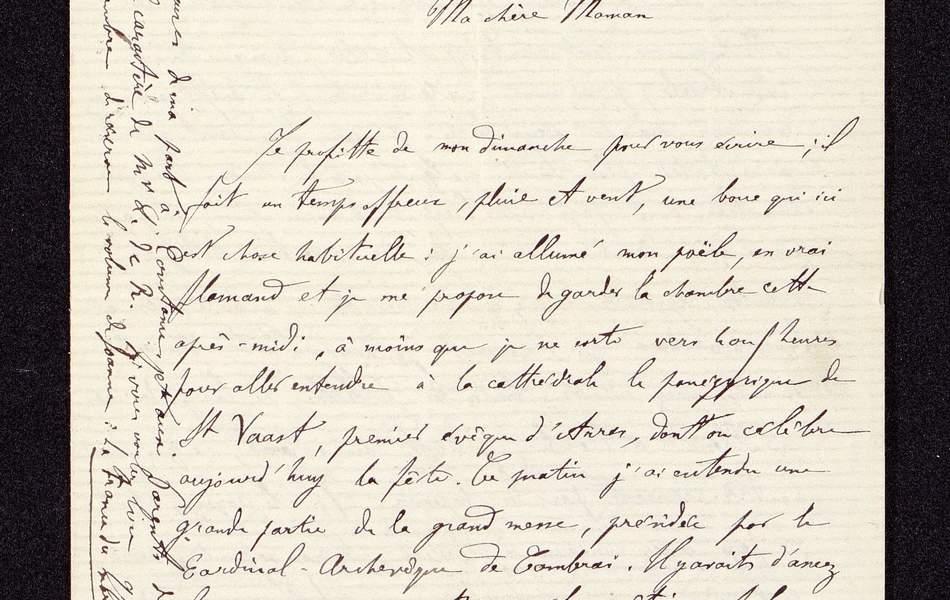 Ma chère Maman
Je profitte de mon dimanche pour vous écrire ; il
fait un temps affreux, pluie et vent, une boue qui ici
est chose habituelle : j'ai allumé mon poële, en vrai
flamand et je me propose de garder la chambre cette
après-midi, à moins que je ne sorte vers heures
pour aller entendre à la cathédrale le panégyrique de
St Vaast, premier évêque d'Arras, dont on célèbre
aujourd'huy la fête. Ce matin j'ai entendu une
grande partie de la grand messe, présidée par le
Cardinal-Archevêque de Cambrai. Il y avait d'assez
part à Constance, et aux parents
de Mr G. de R. Si vous voulez lire
le volume de Joanne : la France